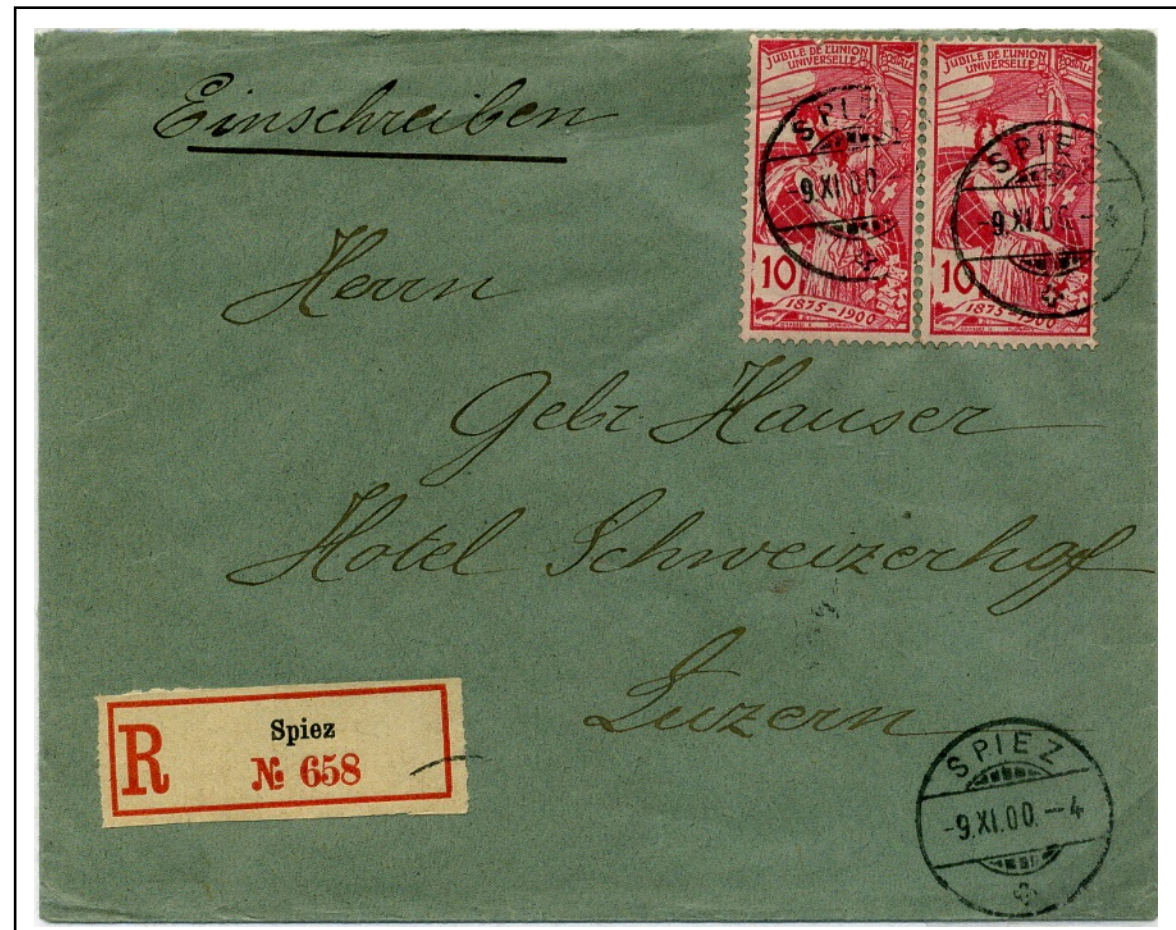 Einschreiben
JUBILÉ DE L'UNION POSTALE
UNIVERSELLE
10
1875-1900
JUBILÉ DE L'UNION POSTALE
UNIVERSELLE
10
1875-1900
SPIEZ
-9.XI.00.-
SPIEZ
-9.XI.00.-4
Herrn
Gebr. Hauser
Hotel Schweizerhof
Luzern
R
Spiez
№ 658
SPIEZ
-9.XI.00.-4